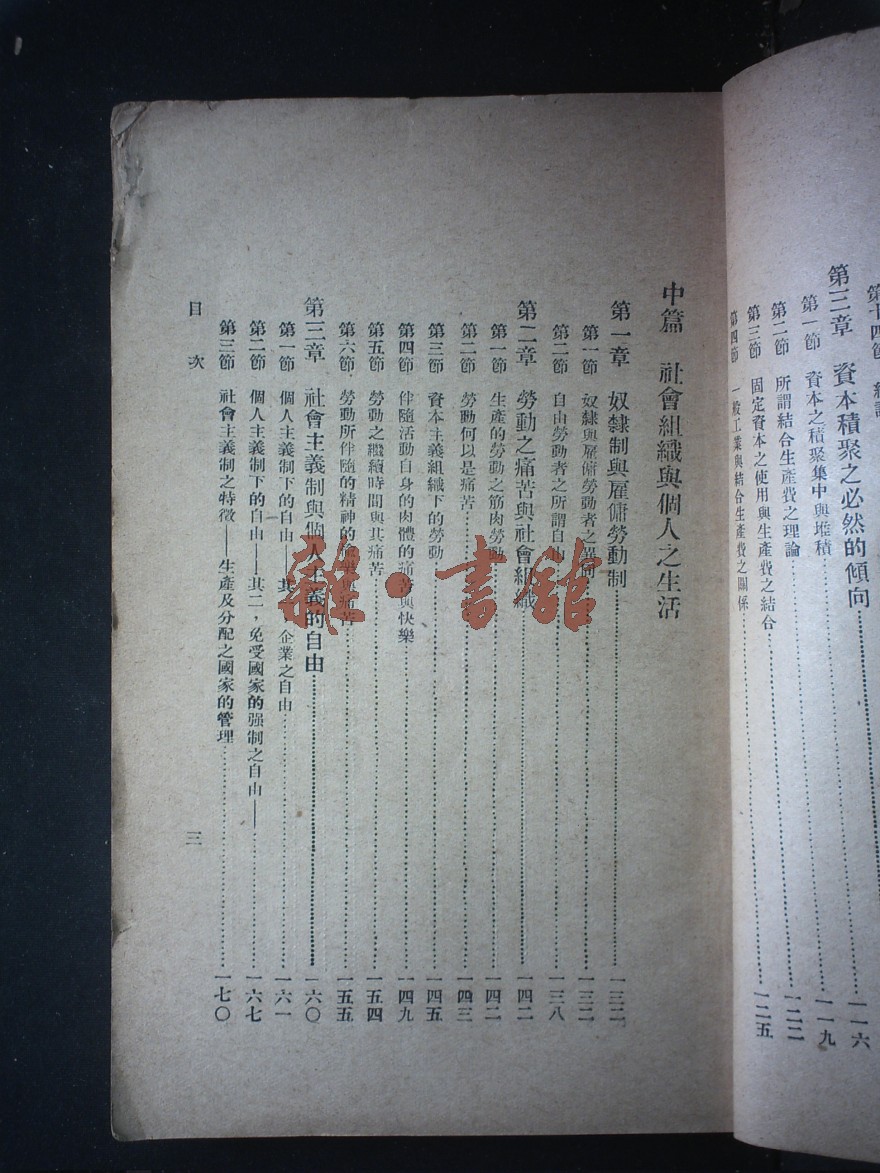 第三章 資本積聚之必然的傾向 一一六
第一節 資本之積聚集中與堆積 一一九
第二節 所謂結合生產費之理論 一二二
第三節 固定資本之使用與生產費之結合 一二五
第四節 一般工業與結合生產費之關係
中篇 社會組織與個人之生活
第一章 奴隸制與雇傭勞動制 一三二
第一節 奴隸與雇傭勞動者之異同 一三二
第二節 自由勞動者之所謂自由 一三八
第二章 勞動之痛苦與社會組織 一四二
第一節 生產的勞動之筋肉勞動 一四二
第二節 勞動何以是痛苦 一四三
第三節 資本主義組織下的勞動 一四五
第四節 伴隨活動自身的肉體的痛苦與快樂 一四九
第五節 勞動之繼續時間與其痛苦 一五四
第六節 勞動所伴隨的精神的 痛苦 一五五
第三章 社會主義制與個人主義的自由 一六〇
第一節 個人主義制下的自由——其 企業之自由 一六一
第二節 個人主義制下的自由——其二，免受國家的强制之自由—— 一六七
第三節 社會主義制之特徵——生產及分配之國家的管理 一七〇
目次
三
雜·書館